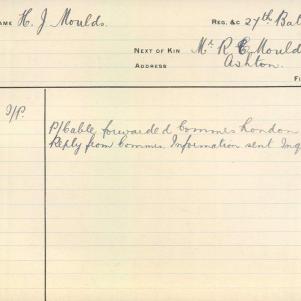 NAME H. J. Moulds. REG. &C 27th Bat
NEXT OF KIN Mr R E Mould
ADDRESS Ashton.
I/P.
P/Cable forwarded Commrs London
Reply from Commrs. Information sent Inq